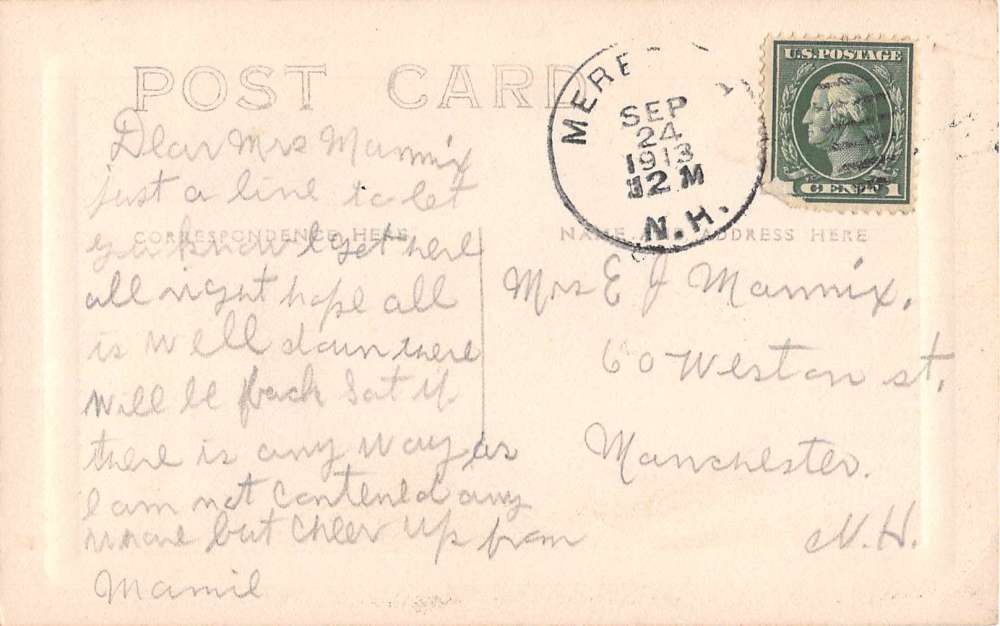 POST CARD
MERE
SEP
24
1913
12 M
N.H.
U.S. POSTAGE
1 CENT 1
CORRESPONDENCE HERE
NAME AND ADDRESS HERE
Dear Mrs Mannix
just a line to let
you know I get here
all right hope all
is well down there
will be back Sat if
there is any way as
I am not contened any
more but cheer up from
Mamie
Mrs E J Mannix.
60 Weston st.
Manchester.
N.H.